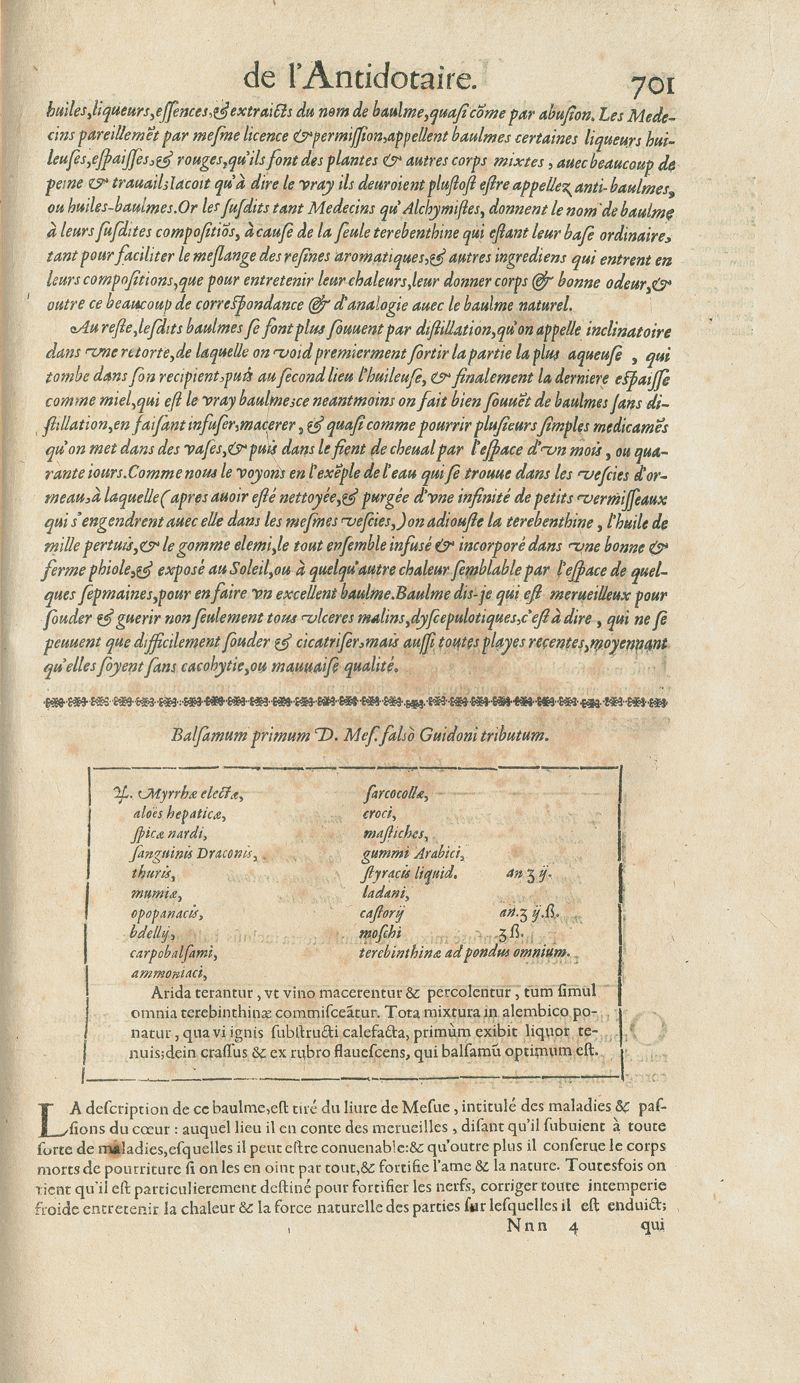 de l'Antidotaire. 701
huiles,liqueurs,eſſences,&extraicts du nom de baulme,quaſi cõme par abuſion. Les Mede-
cins pareillemẽt par meſme licence &permiſſion,appellent baulmes certaines liqueurs hui-
leuſes,eſpaiſſes,& rouges,qu'ils font des plantes & autres corps mixtes, auec beaucoup de
peine & trauail:Iacoit qu'à dire le vray ils deuroient pluſtoſt eſtre appellez anti-baulmes,
ou huiles-baulmes.Or les ſuſdits tant Medecins qu'Alchymiſtes, donnent le nom de baulme
à leurs ſuſdites compoſitiõs, à cauſe de la ſeule terebenthine qui eſtant leur baſe ordinaire,
tant pour faciliter le meſlange des reſines aromatiques,& autres ingrediens qui entrent en
leurs compoſitions,que pour entretenir leur chaleurs,leur donner corps & bonne odeur,&
outre ce beaucoup de correſpondance & d'analogie auec le baulme naturel.
Au reſte,leſdits baulmes ſe font plus ſouuent par diſtillation,qu'on appelle inclinatoire
dans vne retorte,de laquelle on void premierment ſortir la partie la plus aqueuſe , qui
tombe dans ſon recipient,puis au ſecond lieu l'huileuſe, & finalement la derniere eſpaiſſe
comme miel,qui eſt le vray baulme:ce neantmoins on fait bien ſouuẽt de baulmes ſans di-
ſtillation,en faiſant infuſer,macerer , & quaſi comme pourrir pluſieurs ſimples medicamẽs
qu'on met dans des vaſes,& puis dans le fient de cheual par l'eſpace d'vn mois , ou qua-
rante iours.Comme nous le voyons en l'exẽple de l'eau qui ſe trouue dans les veſcies d'or-
meau,à laquelle (apres auoir eſté nettoyée,& purgée d'vne infinité de petits vermiſſeaux
qui s'engendrent auec elle dans les meſmes veſcies,) on adiouſte la terebenthine , l'huile de
mille pertuis,& le gomme elemi,le tout enſemble infusé & incorporé dans vne bonne &
ferme phiole,& exposé au Soleil,ou à quelqu'autre chaleur ſemblable par l'eſpace de quel-
ques ſepmaines,pour en faire vn excellent baulme.Baulme dis-je qui eſt merueilleux pour
ſouder & guerir non ſeulement tous vlceres malins,dyſcepulotiques,c'eſt à dire , qui ne ſe
peuuent que difficilement ſouder & cicatriſer,mais auſſi toutes playes recentes,moyennant
qu'elles ſoyent ſans cacohytie,ou mauuaiſe qualité.
Balſamum primum D. Meſ. falsò Guidoni tributum.
♃. Myrrhæ electæ,
aloës hepaticæ,
ſpicæ nardi,
ſanguinis Draconis,
thuris,
mumiæ,
opopanacis,
bdellij,
carpobalſami,
ammoniaci,
ſarcocollæ,
croci,
maſtiches,
gummi Arabici,
ſtyracis liquid. an ʒ ij.
ladani,
caſtorij an.ʒ ij.ß.
moſchi ʒ ß.
terebinthinæ ad pondus omnium.
Arida terantur , vt vino macerentur & percolentur , tum ſimul
omnia terebinthinæ commiſceãtur. Tota mixtura in alembico po-
natur , qua vi ignis ſubſtructi calefacta, primùm exibit liquor te-
nuis;dein craſſus & ex rubro flaueſcens, qui balſamũ optimum eſt.
LA deſcription de ce baulme,eſt tiré du liure de Meſue , intitulé des maladies & paſ-
ſions du cœur : auquel lieu il en conte des merueilles , diſant qu'il ſubuient à toute
ſorte de maladies,eſquelles il peut eſtre conuenable:& qu'outre plus il conſerue le corps
morts de pourriture ſi on les en oint par tout,& fortifie l'ame & la nature. Toutesfois on
tient qu'il eſt particulierement deſtiné pour fortifier les nerfs, corriger toute intemperie
froide entretenir la chaleur & la force naturelle des parties ſur leſquelles il eſt enduict;
Nnn 4 qui